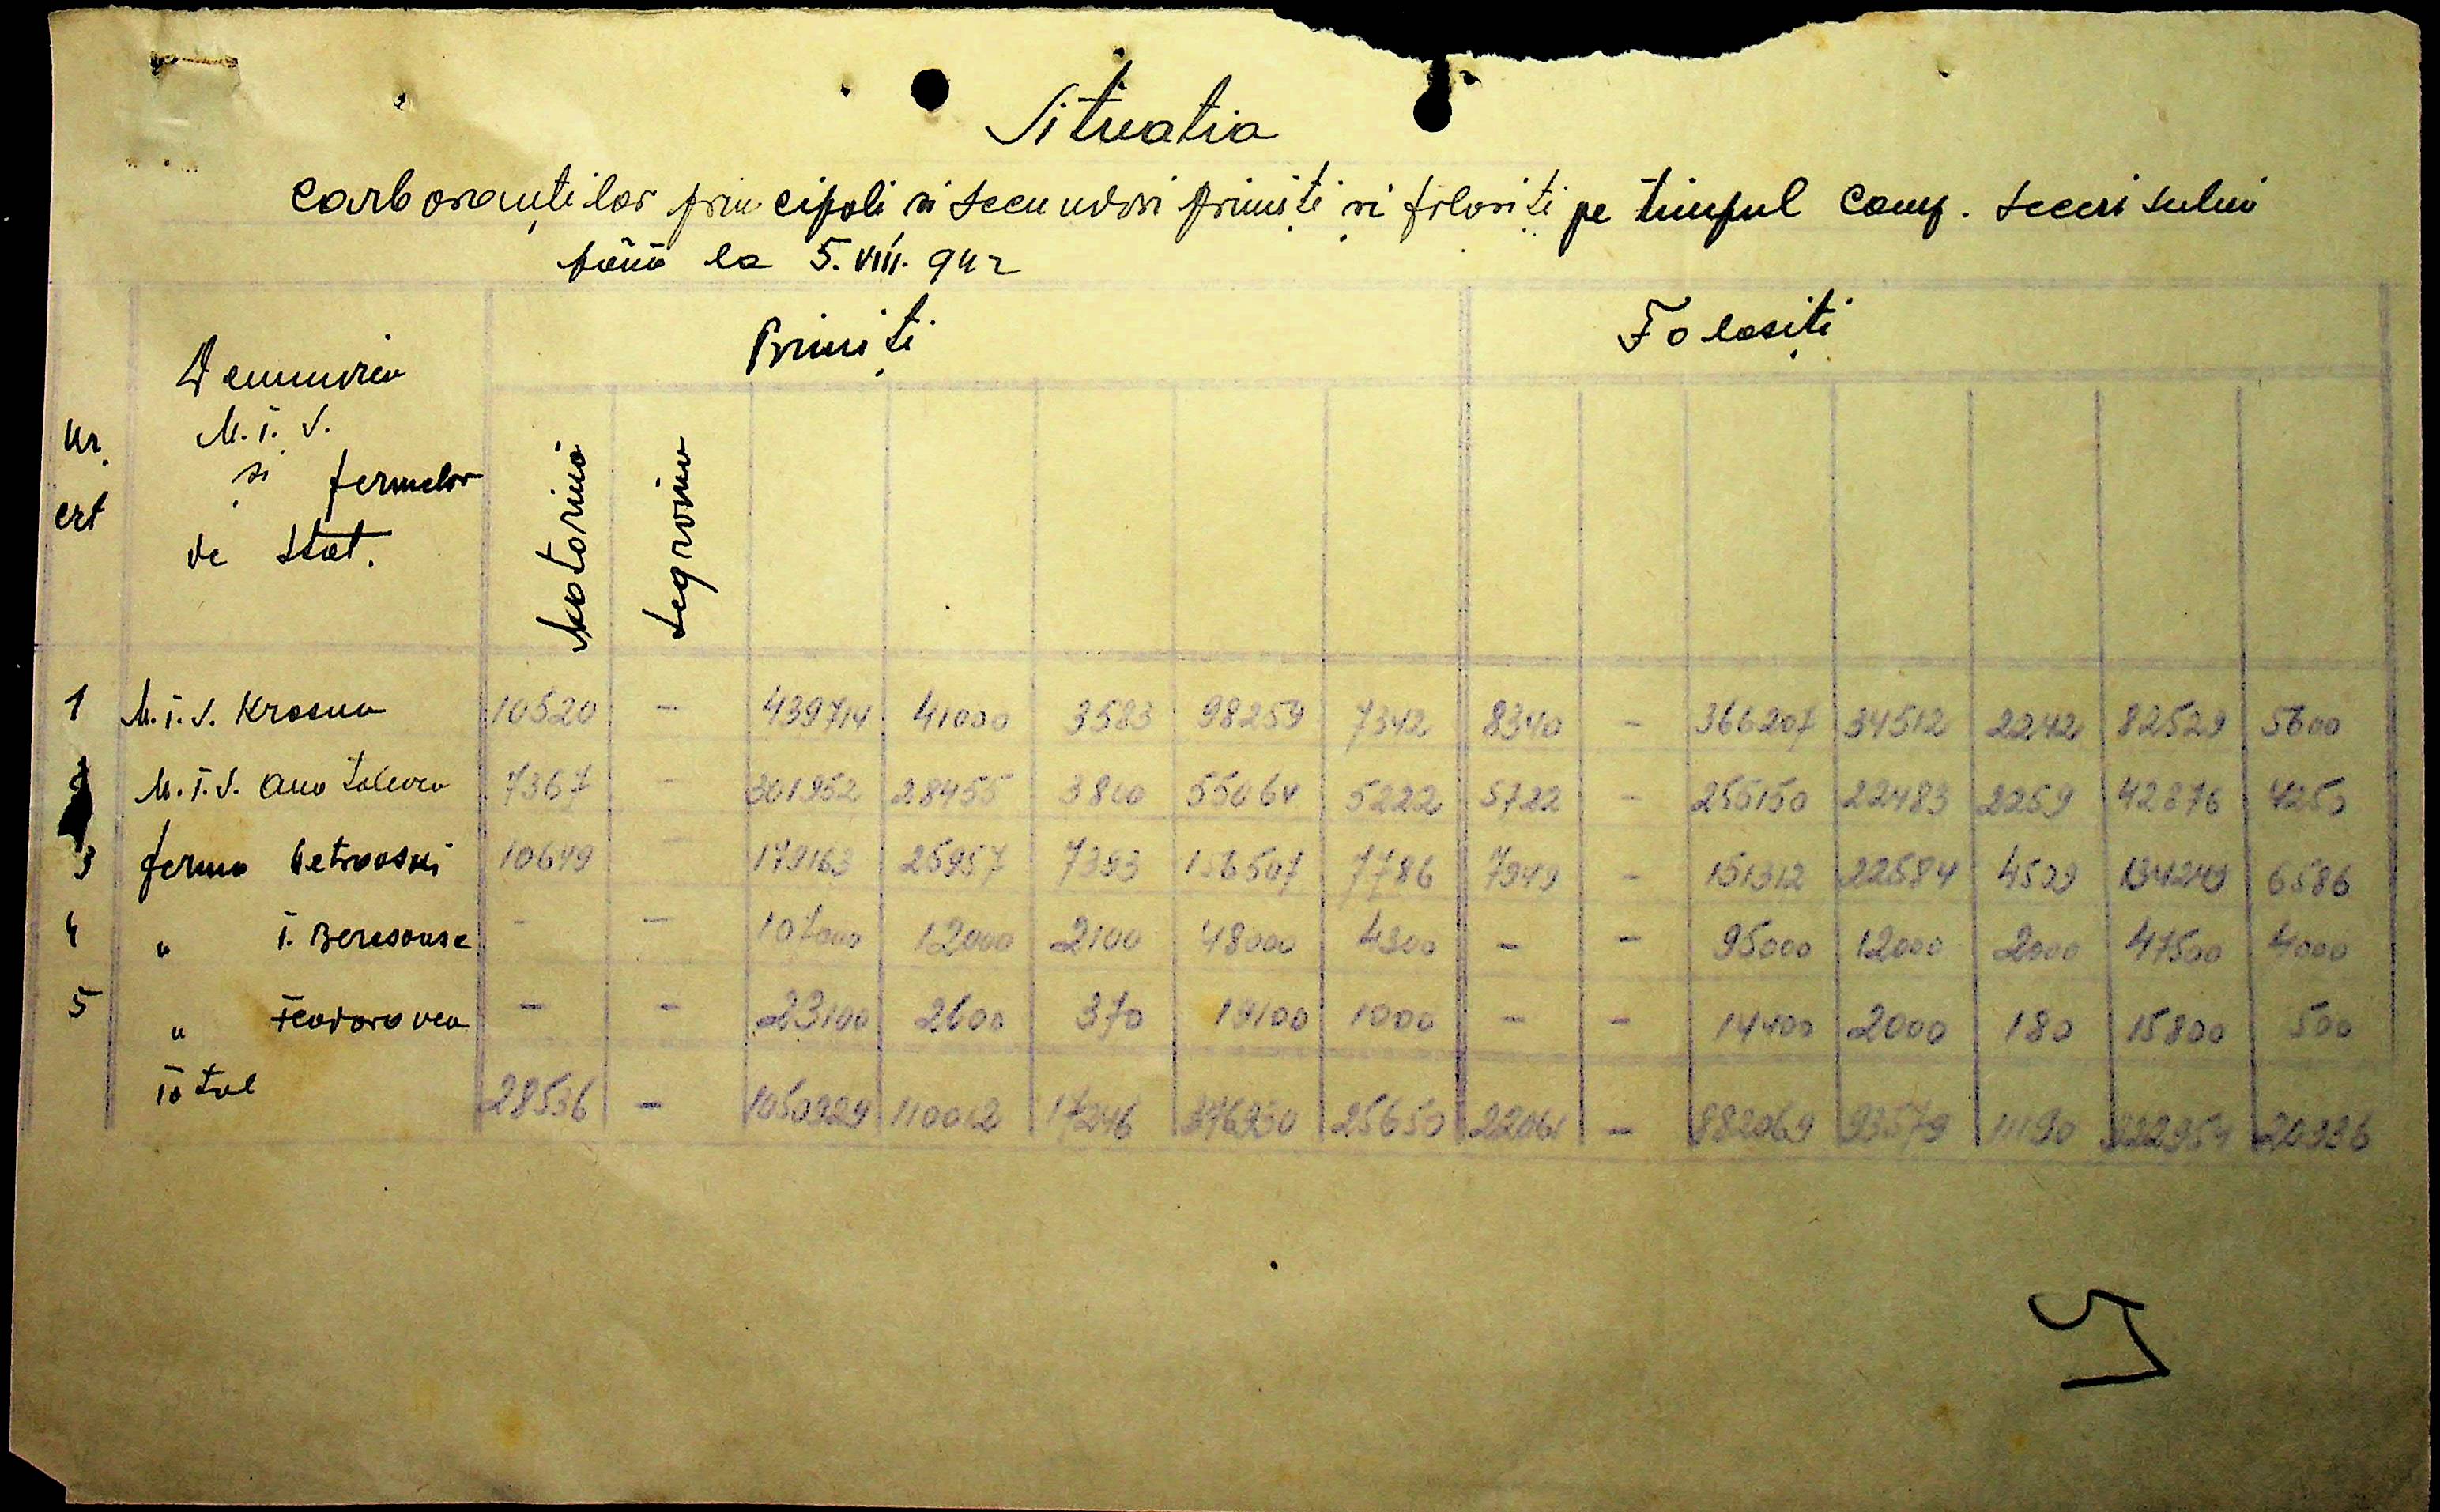 Situatia
carboranților principali si secundari primiți si folosiți pe timpul Camp. secerisului
până la 5.VIII.942
Nr. crt
Denumirea M.T.S. și fermelor de Stat.
Primiți
Folosiți
Motorină
Ligroină
1 M.T.S. Krasna 10520 - 439714 41000 3583 98259 7342 8340 - 366207 34512 2242 82529 5600
2 M.T.S. 7367 - 301952 28455 3800 55064 5222 5722 - 255150 22483 2259 42876 4250
3 ferma Petrovski 10649 - 179163 25957 7393 156507 7786 7949 - 151312 22584 4509 134249 6586
4 " T. - - 107000 12000 2100 48000 4300 - - 95000 12000 2000 47500 4000
5 " Teodorovca - - 23100 2600 370 19100 1000 - - 14400 2000 180 15800 500
Total 28536 - 1050929 110012 17246 376930 25650 22061 - 882069 93579 11190 322954 20936